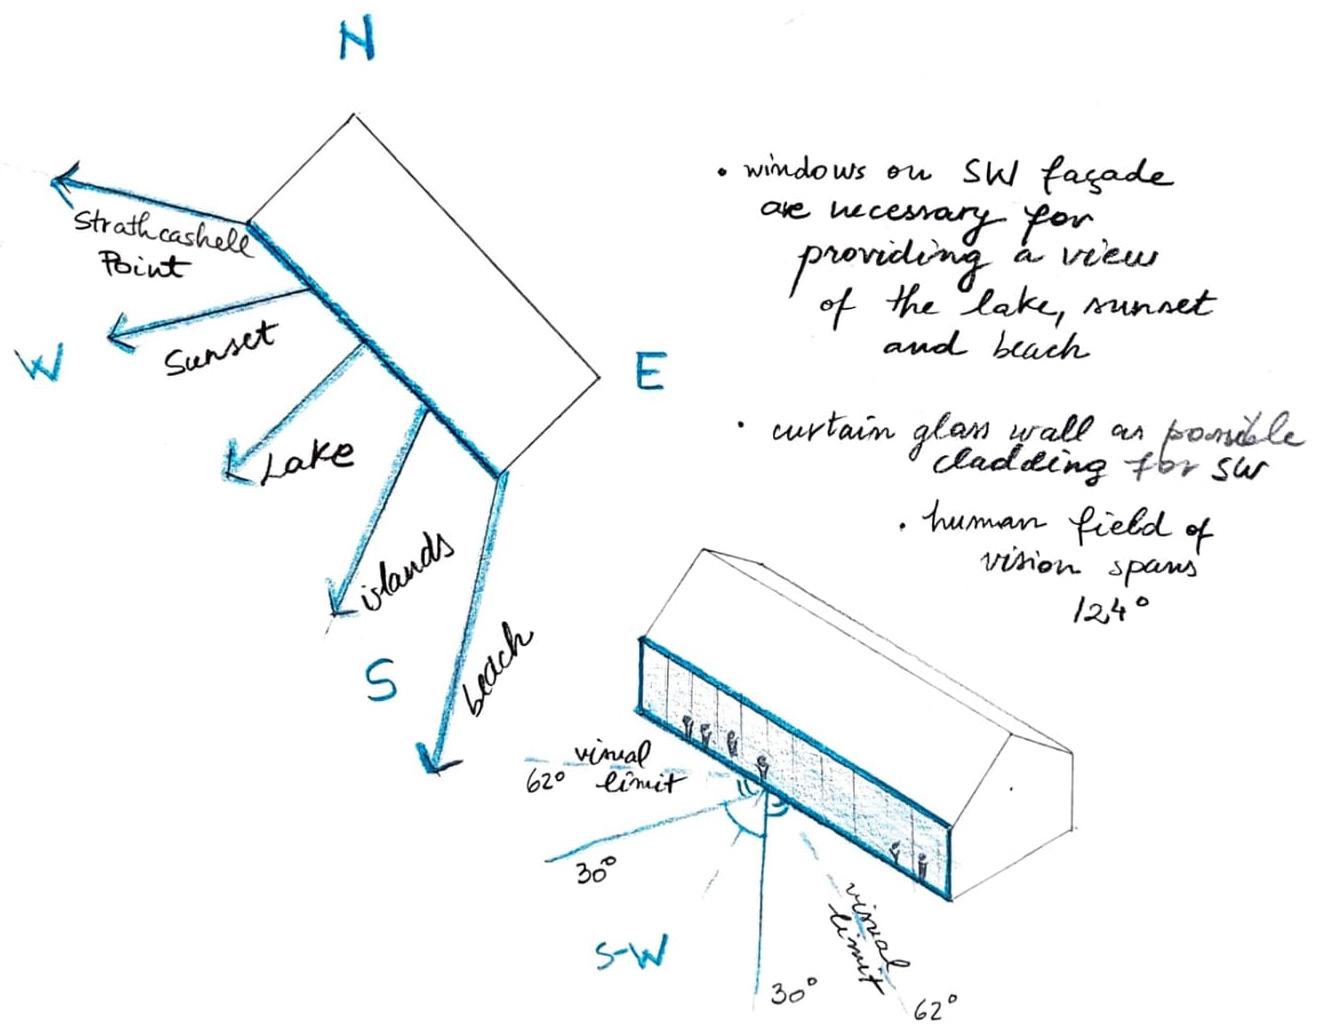 N
Strathcashell
Point
W
Sunset
Lake
islands
beach
S
E
• windows on SW façade
are necessary for
providing a view
of the lake, sunset
and beach
• curtain glass wall as possible
cladding for SW
• human field of
vision spans
124°
visual
62° limit
30°
S-W
30°
visual
limit
62°